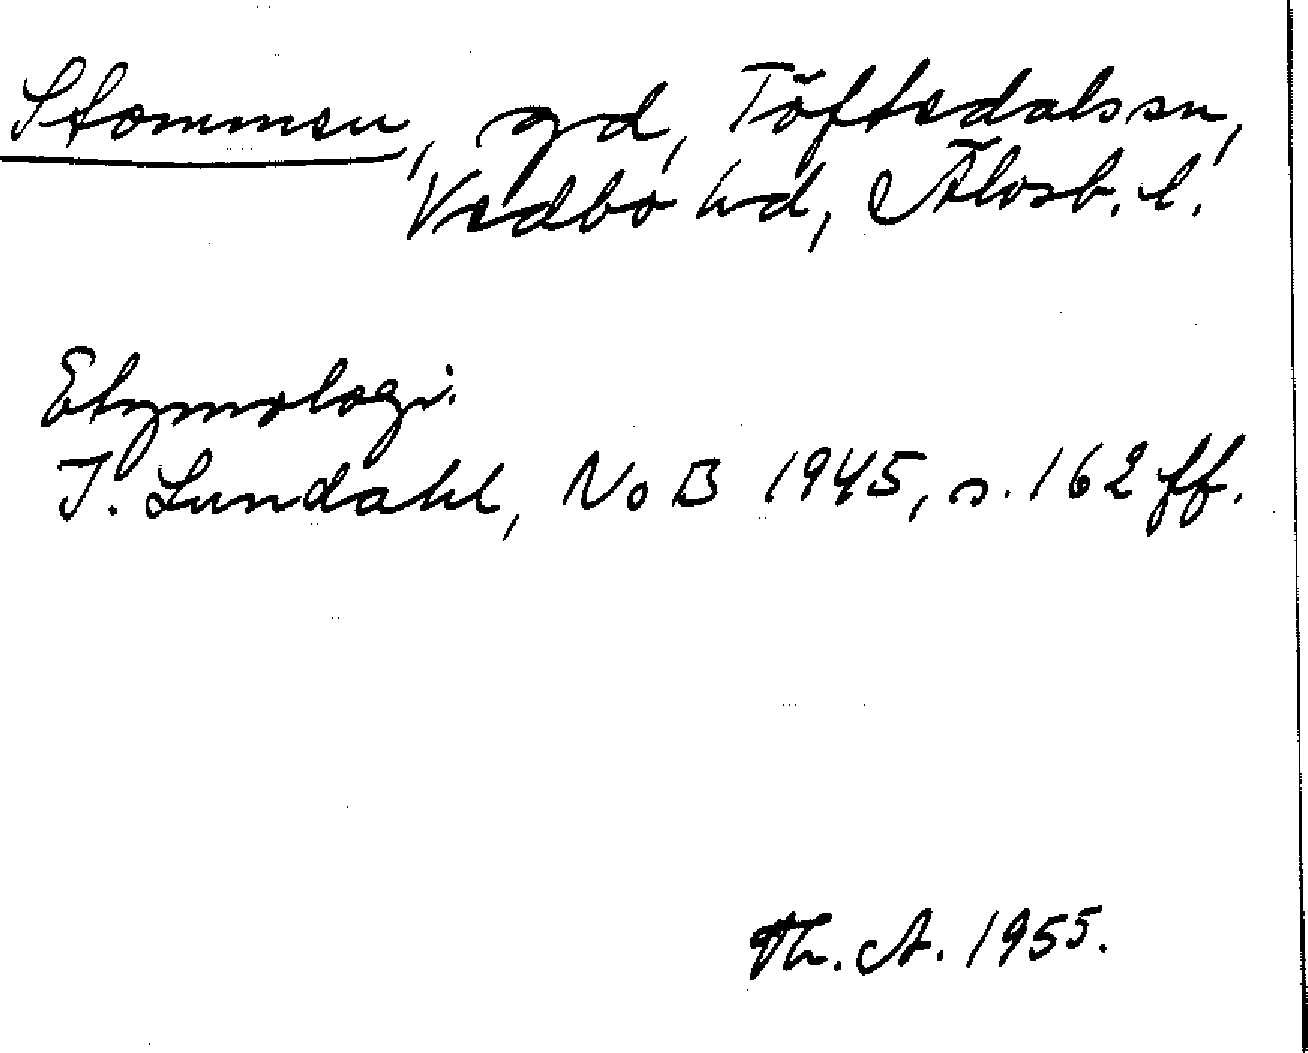 Stommen, gd, Töftedals sn,
Vedbo hd, Älvsb. l.
Etymologi.
I. Lundahl, NoB 1945, s. 162 ff.
Th. A. 1955.